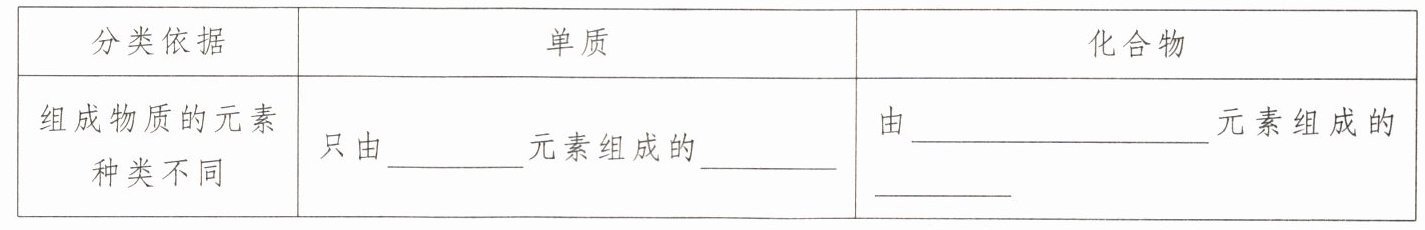 分类依据 单质 化合物
组成物质的元素种类不同 只由________元素组成的________ 由________________元素组成的________